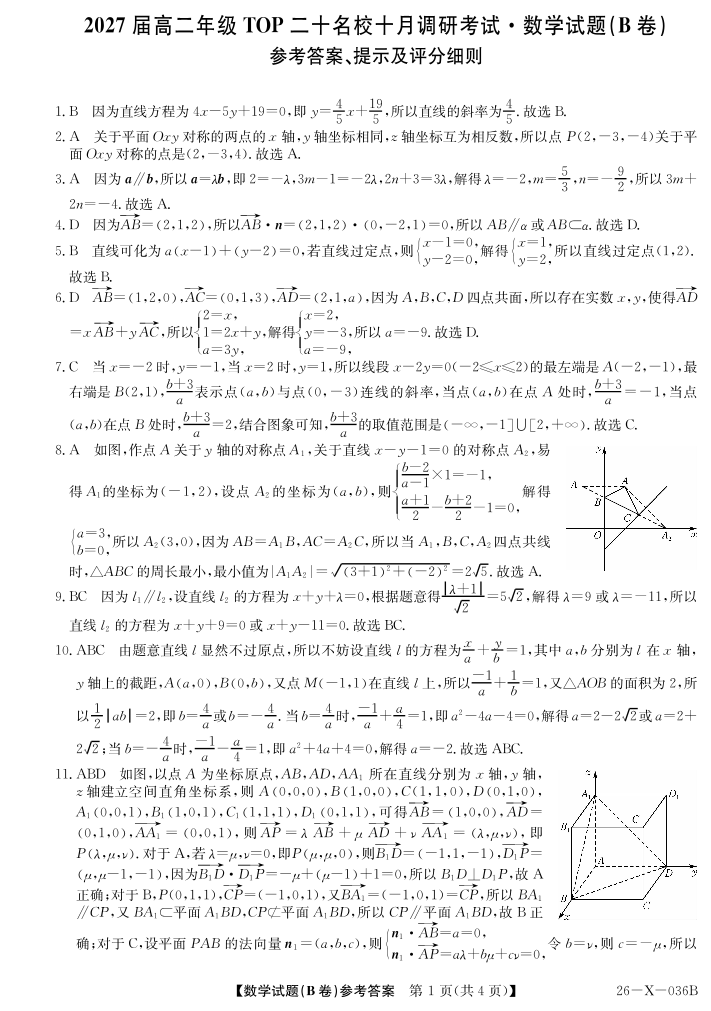 2027 届高二年级 TOP 二十名校十月调研考试·数学试题(B 卷)
参考答案、提示及评分细则
1. B 因为直线方程为 4x−5y+19=0,即 y=4/5x+19/5,所以直线的斜率为4/5. 故选 B.
2. A 关于平面 Oxy 对称的两点的 x 轴,y 轴坐标相同,z 轴坐标互为相反数,所以点 P(2,−3,−4)关于平
面 Oxy 对称的点是(2,−3,4). 故选 A.
3. A 因为 a∥b,所以 a=λb,即 2=−λ,3m−1=−2λ,2n+3=3λ,解得 λ=−2,m=5/3,n=−9/2,所以 3m+
2n=−4. 故选 A.
4. D 因为AB→=(2,1,2),所以AB→·n=(2,1,2)·(0,−2,1)=0,所以 AB∥α 或 AB⊂α. 故选 D.
5. B 直线可化为 a(x−1)+(y−2)=0,若直线过定点,则{x−1=0, y−2=0,解得{x=1, y=2,所以直线过定点(1,2).
故选 B.
6. D AB→=(1,2,0),AC→=(0,1,3),AD→=(2,1,a),因为 A,B,C,D 四点共面,所以存在实数 x,y,使得AD→
=xAB→+yAC→,所以{2=x, 1=2x+y, a=3y,解得{x=2, y=−3, a=−9,所以 a=−9. 故选 D.
7. C 当 x=−2 时,y=−1,当 x=2 时,y=1,所以线段 x−2y=0(−2≤x≤2)的最左端是 A(−2,−1),最
右端是 B(2,1),(b+3)/a表示点(a,b)与点(0,−3)连线的斜率,当点(a,b)在点 A 处时,(b+3)/a=−1,当点
(a,b)在点 B 处时,(b+3)/a=2,结合图象可知,(b+3)/a的取值范围是(−∞,−1]∪[2,+∞). 故选 C.
8. A 如图,作点 A 关于 y 轴的对称点 A₁,关于直线 x−y−1=0 的对称点 A₂,易
得 A₁的坐标为(−1,2),设点 A₂的坐标为(a,b),则{(b−2)/(a−1)×1=−1, (a+1)/2−(b+2)/2−1=0, 解得
{a=3, b=0,所以 A₂(3,0),因为 AB=A₁B,AC=A₂C,所以当 A₁,B,C,A₂四点共线
时,△ABC 的周长最小,最小值为|A₁A₂|=√((3+1)²+(−2)²)=2√5. 故选 A.
y
A
A
B
C
O
A₂
x
9. BC 因为 l₁∥l₂,设直线 l₂ 的方程为 x+y+λ=0,根据题意得|λ+1|/√2=5√2,解得 λ=9 或 λ=−11,所以
直线 l₂ 的方程为 x+y+9=0 或 x+y−11=0. 故选 BC.
10. ABC 由题意直线 l 显然不过原点,所以不妨设直线 l 的方程为x/a+y/b=1,其中 a,b 分别为 l 在 x 轴,
y 轴上的截距,A(a,0),B(0,b),又点 M(−1,1)在直线 l 上,所以−1/a+1/b=1,又△AOB 的面积为 2,所
以1/2|ab|=2,即b=4/a或b=−4/a. 当 b=4/a时,−1/a+a/4=1,即 a²−4a−4=0,解得 a=2−2√2或 a=2+
2√2;当 b=−4/a时,−1/a−a/4=1,即 a²+4a+4=0,解得 a=−2. 故选 ABC.
11. ABD 如图,以点 A 为坐标原点,AB,AD,AA₁ 所在直线分别为 x 轴,y 轴,
z 轴建立空间直角坐标系,则 A(0,0,0),B(1,0,0),C(1,1,0),D(0,1,0),
A₁(0,0,1),B₁(1,0,1),C₁(1,1,1),D₁(0,1,1),可得AB→=(1,0,0),AD→=
(0,1,0),AA₁→=(0,0,1),则AP→=λAB→+μAD→+νAA₁→=(λ,μ,ν),即
P(λ,μ,ν). 对于 A,若 λ=μ,ν=0,即P(μ,μ,0),则B₁D→=(−1,1,−1),D₁P→=
(μ,μ−1,−1),因为B₁D→·D₁P→=−μ+(μ−1)+1=0,所以 B₁D⊥D₁P,故 A
正确;对于 B,P(0,1,1),CP→=(−1,0,1),又BA₁→=(−1,0,1)=CP→,所以 BA₁
∥CP,又 BA₁⊂平面 A₁BD,CP⊄平面 A₁BD,所以 CP∥平面 A₁BD,故 B 正
确;对于 C,设平面 PAB 的法向量 n₁=(a,b,c),则{n₁·AB→=a=0, n₁·AP→=aλ+bμ+cν=0,令 b=ν,则 c=−μ,所以
z
A₁
D₁
B₁
C
A
D
y
B
C
x
【数学试题(B 卷)参考答案 第 1 页(共 4 页)】
26−X−036B